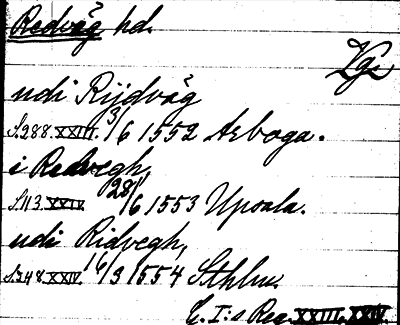 Redväg hd.
Vg.
udi Rijdvåg
S.288. XXIII. 3/6 1552 Arboga.
i Redvegh,
S.113 XXIV. 28/6 1553 Upsala.
udi Ridvegh,
S.348. XXIV. 16/3 1554 Sthlm.
G. I:s Reg. XXIII. XXIV.